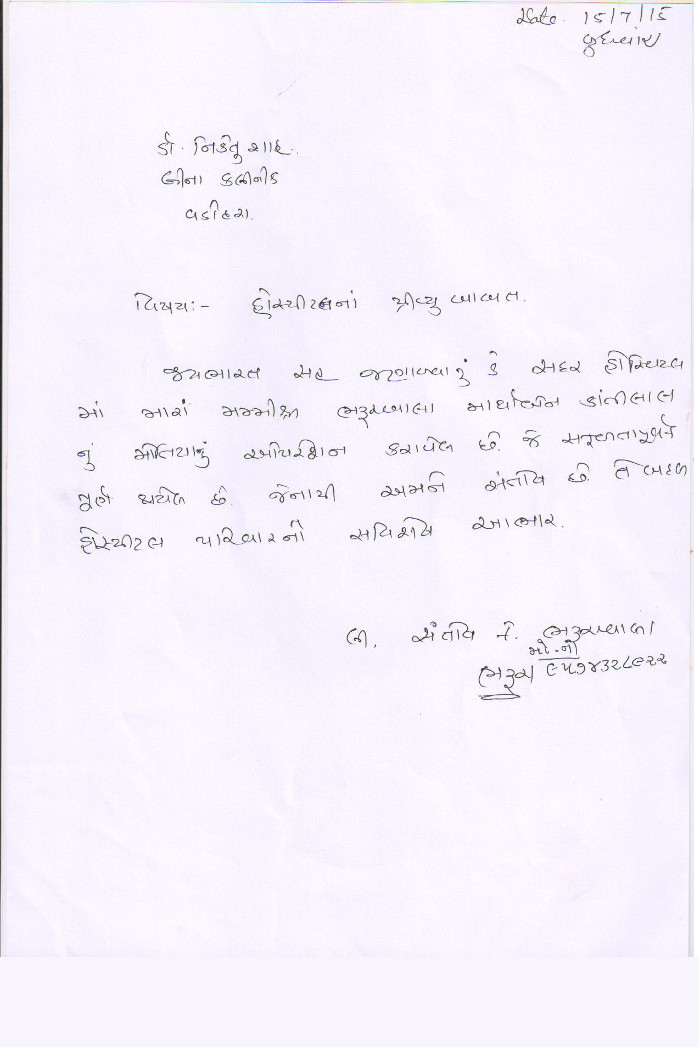 Date. 15/7/15
બુધવાર
ડૉ. નિકેતુ શાહ.
બીના કલીનીક
વડોદરા.
વિષય:- હોસ્પીટલનાં રીવ્યુ બાબત.
જયભારત સહ જણાવવાનું કે સદર હોસ્પિટલ
માં મારાં મમ્મીશ્રી ભરૂચવાલા કાંતીલાલ
નું મોતિયાનું ઓપરેશન કરાયેલ છે. જે સફળતાપૂર્વક
પૂર્ણ થયેલ છે. જેનાથી અમને સંતોષ છે. તે બદલ
હોસ્પીટલ પરિવારનો સવિશેષ આભાર.
લી. કે. ભરૂચવાલા
મો.નં
ભરૂચ ૯૫૭૪૩૨૮૯૨૨